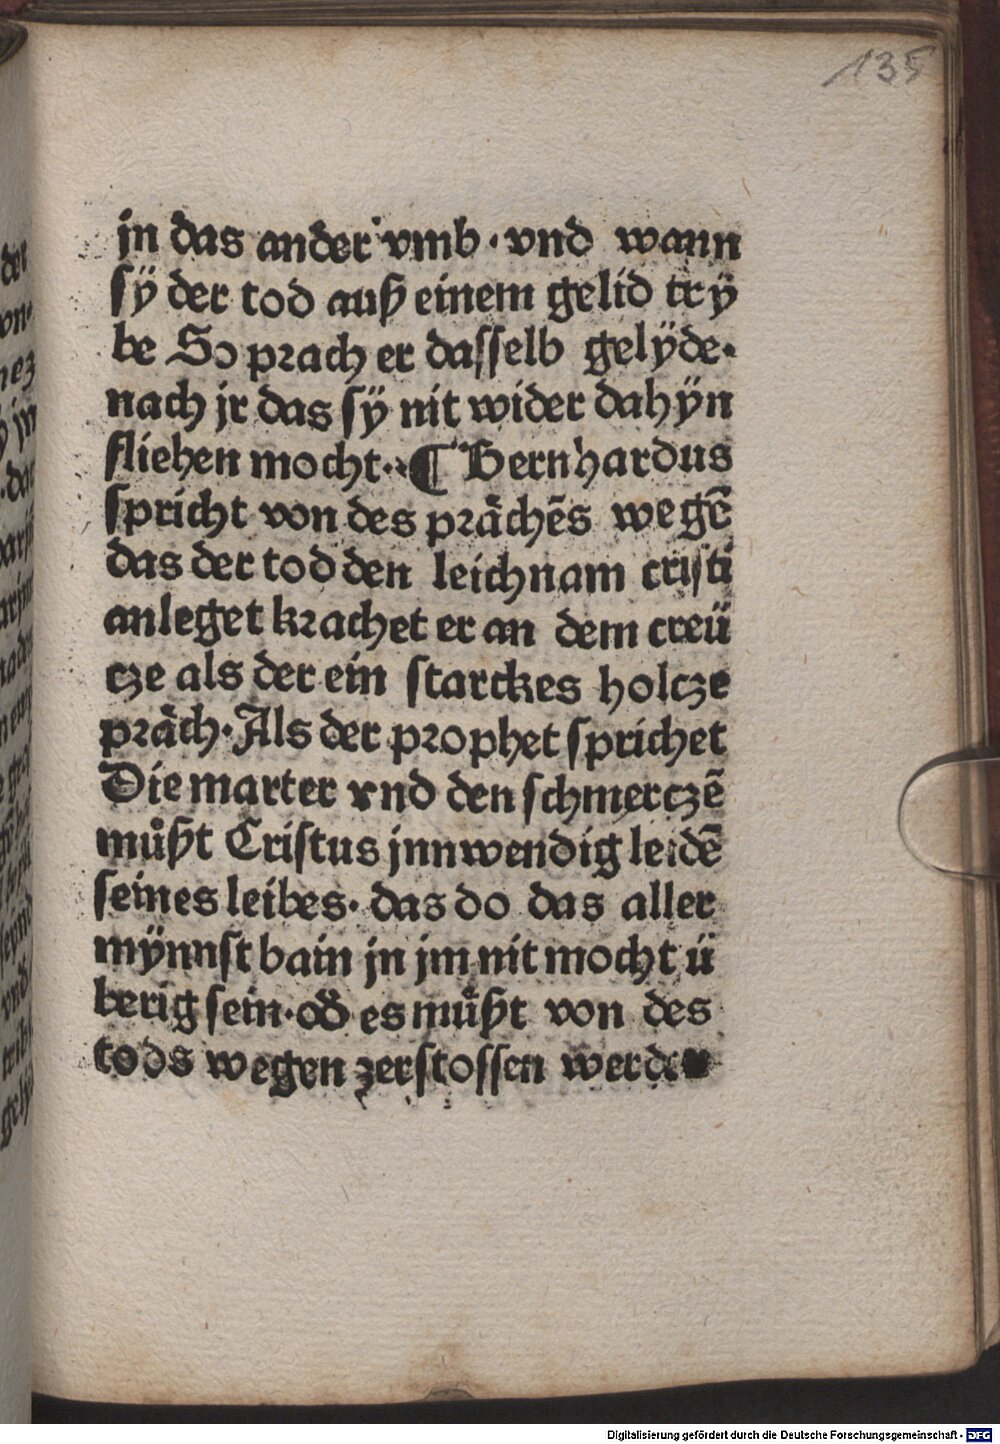 135
jn das ander vmb · vnd wann
sÿ der tod auß einem gelid trÿ
be So prach er dasselb gelÿde·
nach jr das sÿ nit wider dahÿn
fliehen mocht· ¶ Bernhardus
spricht von des prächēs wegē
das der tod den leichnam cristi
anleget krachet er an dem creü
cze als der ein starckes holcze
präch· Als der prophet sprichet
Die marter vnd den schmerczē
můßt Cristus jnnwendig leidē
seines leibes· das do das aller
mÿnnst bain jn jm nit mocht ü
berig sein· od̄ es můßt von des
tods wegen zerstossen werden
Digitalisierung gefördert durch die Deutsche Forschungsgemeinschaft - DFG